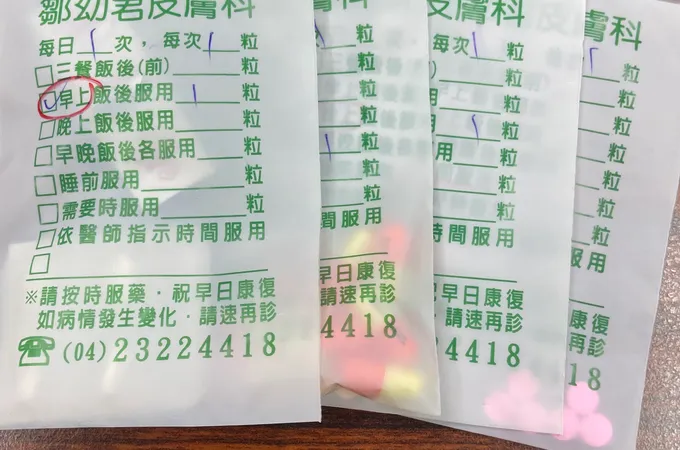 鄒幼君皮膚科
每日 1 次，每次 1 粒
□三餐飯後(前)____粒
☑早上飯後服用 1 粒
□晚上飯後服用____粒
□早晚飯後各服用____粒
□睡前服用____粒
□需要時服用____粒
□依醫師指示時間服用
□
※請按時服藥．祝早日康復
如病情發生變化．請速再診
☎(04)23224418
科
1 粒
粒
粒
粒
1 粒
粒
粒
間服用
早日康復
請速再診
4418
皮膚科
每次 1 粒
粒
粒
用 1 粒
用 粒
粒
粒
時間服用
祝早日康復
．請速再診
24418
皮膚科
1 粒
粒
粒
粒
粒
粒
粒
服用
康復
再診
18